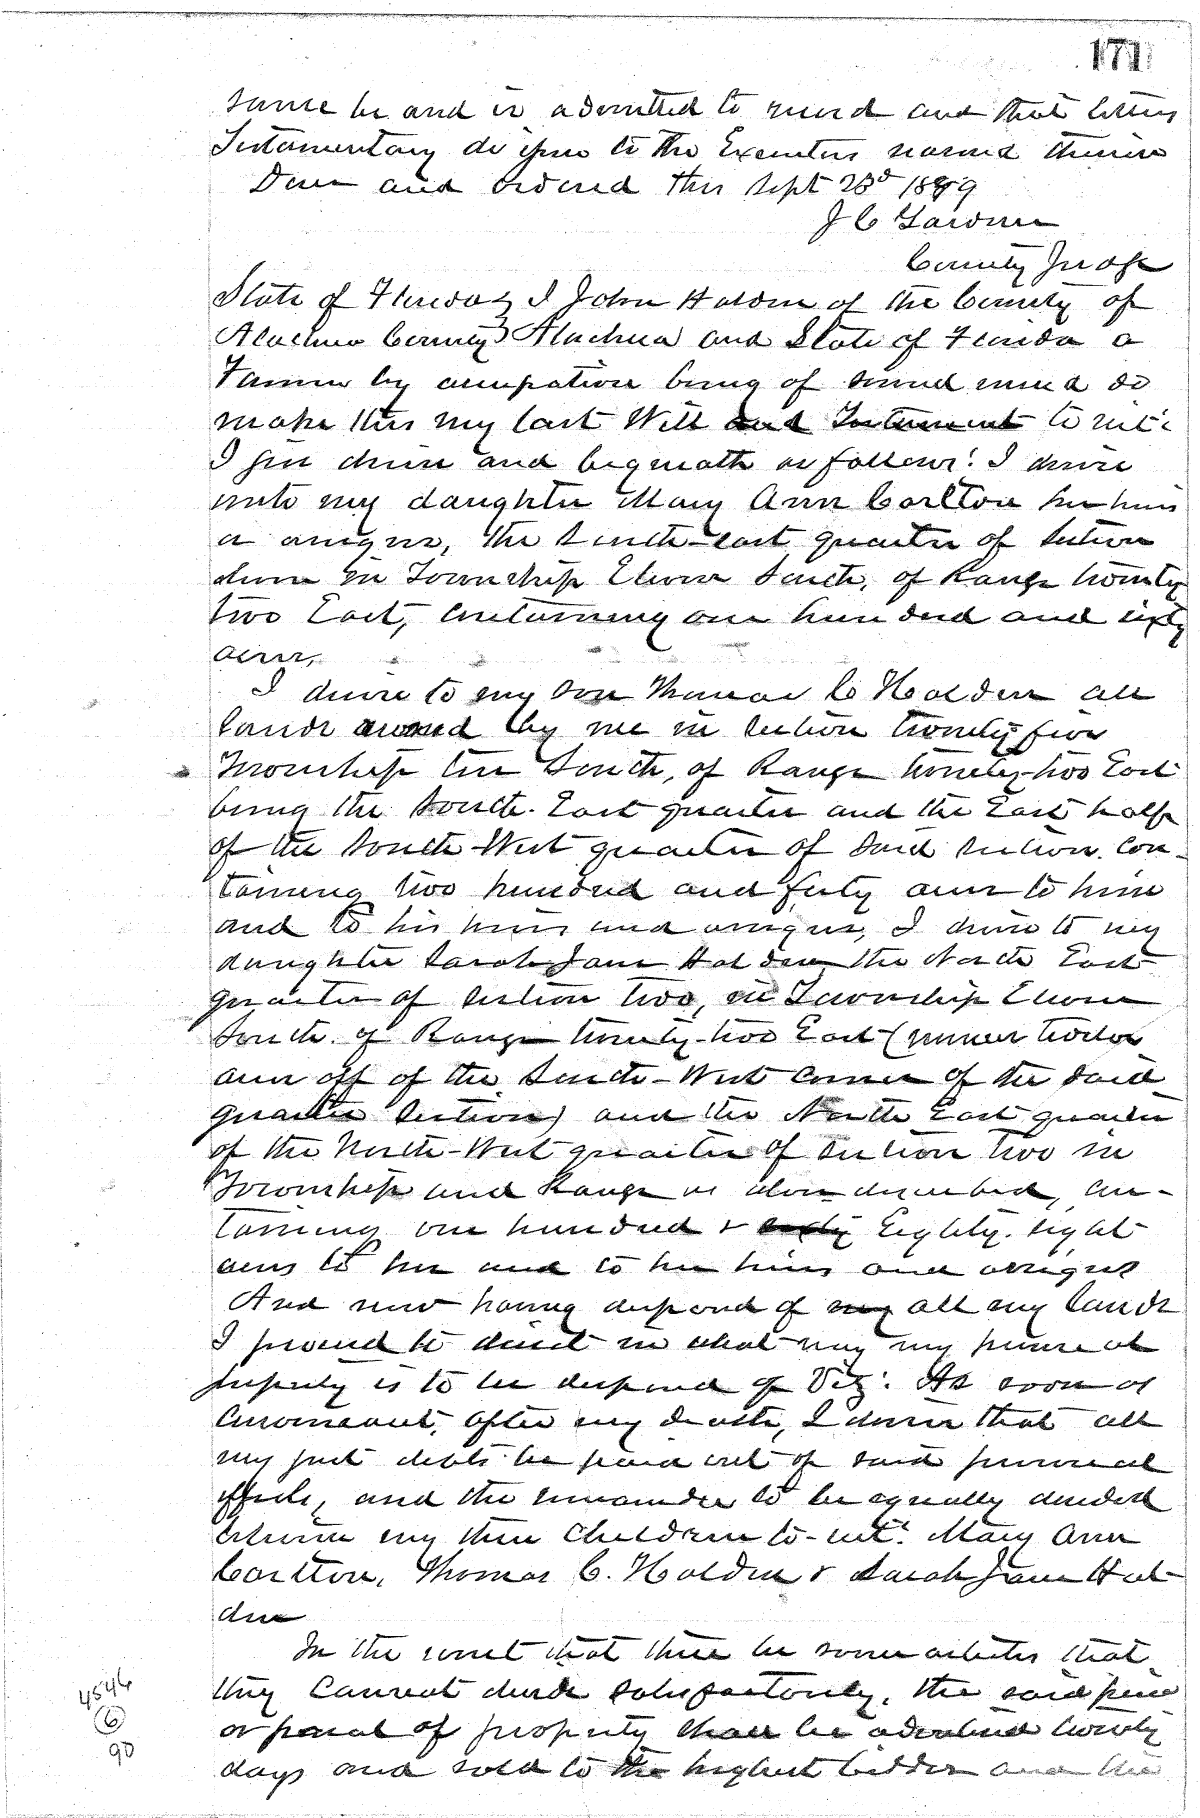 171
same be and is admitted to record and that letters
Testamentary do issue to the Executors named therein
Done and ordered this Sept 23d 1889
J C Gardner
County Judge
State of Florida } I John Holden of the County of
Alachua County } Alachua and State of Florida a
Farmer by occupation being of sound mind do
make this my last Will and Testament to wit:
I give devise and bequeath as follows: I devise
unto my daughter Mary Ann Carlton her heirs
or assigns, the South-east quarter of Section
eleven in Township Eleven South, of Range twenty
two East, containing one hundred and sixty
acres,
I devise to my son Thomas C Holden all
lands owned by me in section twenty five
Township ten South, of Range twenty-two East
being the South-East quarter and the East half
of the South-West quarter of said section. con-
taining two hundred and forty acres to him
and to his heirs and assigns, I devise to my
daughter Sarah Jane Holden the North East
quarter of section two, in Township Eleven
South. of Range twenty-two East (minus twelve
acres off of the South-West corner of the said
quarter section) and the North East quarter
of the North-West quarter of section two in
Township and Range as above described, con-
taining one hundred & sixty Eighty-eight
acres to her and to her heirs and assigns
And now having disposed of my all my lands
I proceed to direct in what way my personal
property is to be disposed of Viz: As soon as
convenient, after my death, I desire that all
my just debts be paid out of said personal
effects, and the remainder to be equally divided
between my three children to-wit: Mary Ann
Carlton, Thomas C. Holden & Sarah Jane Hol-
den
In the event that there be some articles that
they cannot divide satisfactorily, the said piece
or parcel of property shall be advertised twenty
days and sold to the highest bidder and the
4546
6
90